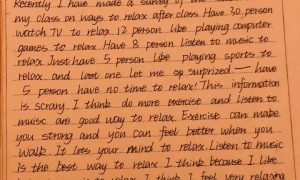 Recently I have made a survey of the
my class on ways to relax after class. Have 30 person
watch TV to relax. 12 person like playing computer
games to relax. Have 8 person Listen to music to
relax. Just have 5 person like playing sports to
relax. and last one let me so surprized — have
5 person have no time to relax! This information
is scrary. I think do more exercise and listen to
muisc are good way to relax. Exercise can make
you strong and you can feel better when you
walk. It lets your mind to relax. Listen to music
is the best way to relax I think. because I like
to relax I think I feel very relaxing